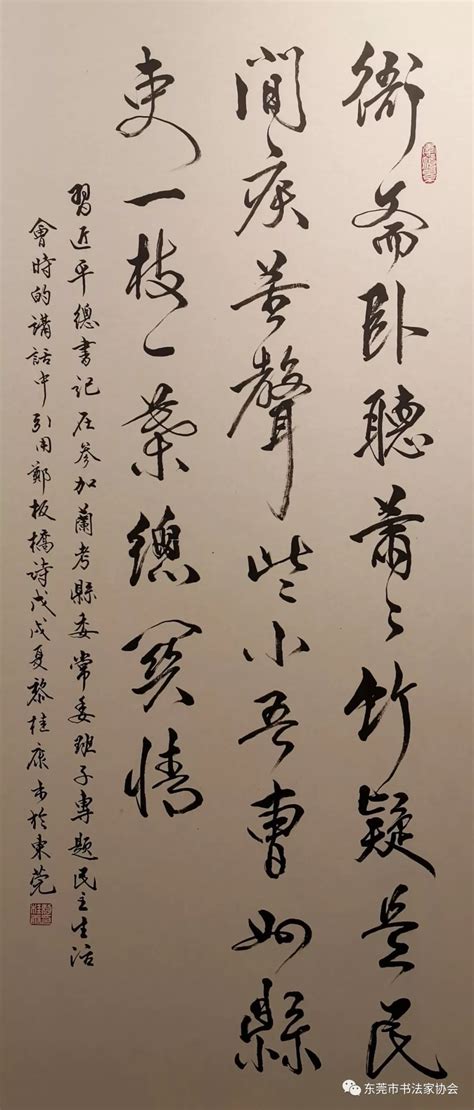 衙斋卧聽蕭々竹疑是民
間疾苦聲些小吾曹州縣
吏一枝一葉總關情
習近平總書記在參加蘭考縣委常委班子專題民主生活
會時的講話中引用鄭板橋詩戊戌夏黎桂康书於東莞
东莞市书法家协会